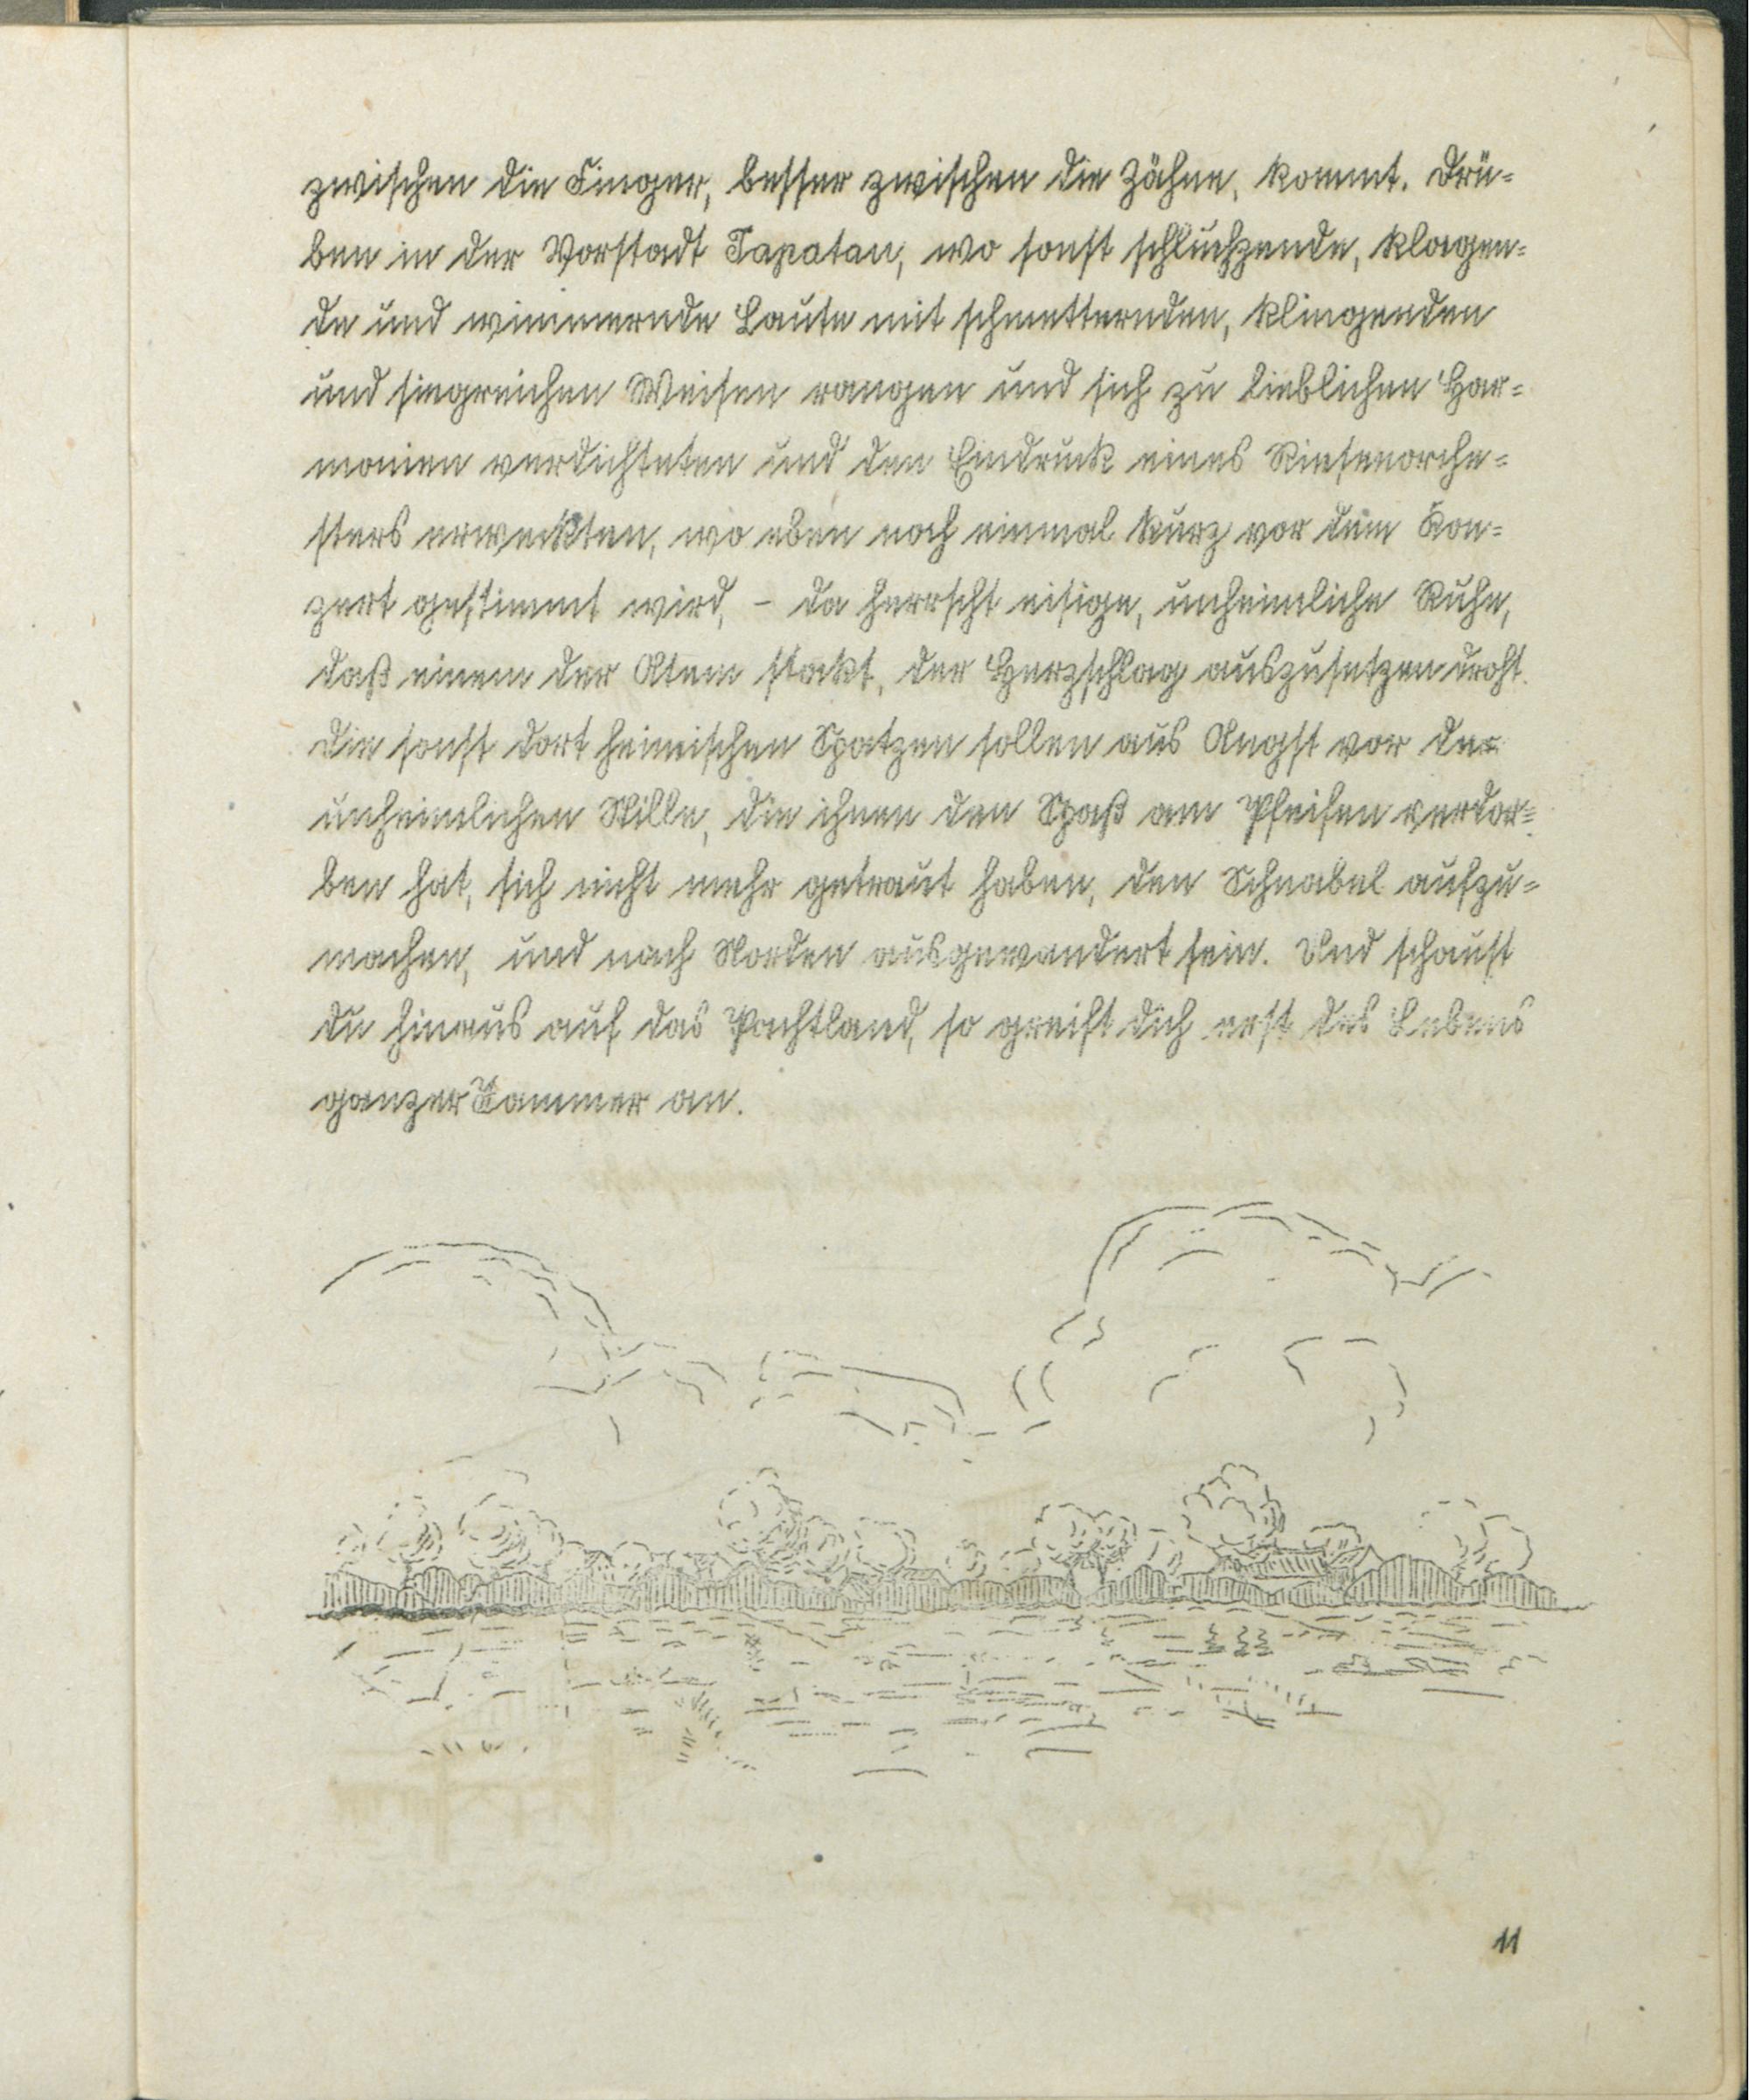 zwischen die Finger, besser zwischen die Zähne, kommt. Drü=
ben in der Vorstadt Tapatau, wo sonst schluchzende, klagen=
de und wimmernde Laute mit schmetternden, klingenden
und siegreichen Weisen rangen und sich zu lieblichen Har=
monien verdichteten und den Eindruck eines Riesenorche=
sters erweckten, wo eben noch einmal kurz vor dem Kon=
zert gestimmt wird, - da herrscht eisige, unheimliche Ruhe,
daß einem der Atem stockt, der Herzschlag auszusetzen droht.
Die sonst dort heimischen Spatzen sollen aus Angst vor der
unheimlichen Stille, die ihnen den Spaß am Pfeifen verdor=
ben hat, sich nicht mehr getraut haben, den Schnabel aufzu=
machen, und nach Norden ausgewandert sein. Und schaust
du hinaus auf das Pachtland, so greift dich erst des Lebens
ganzer Jammer an.
11